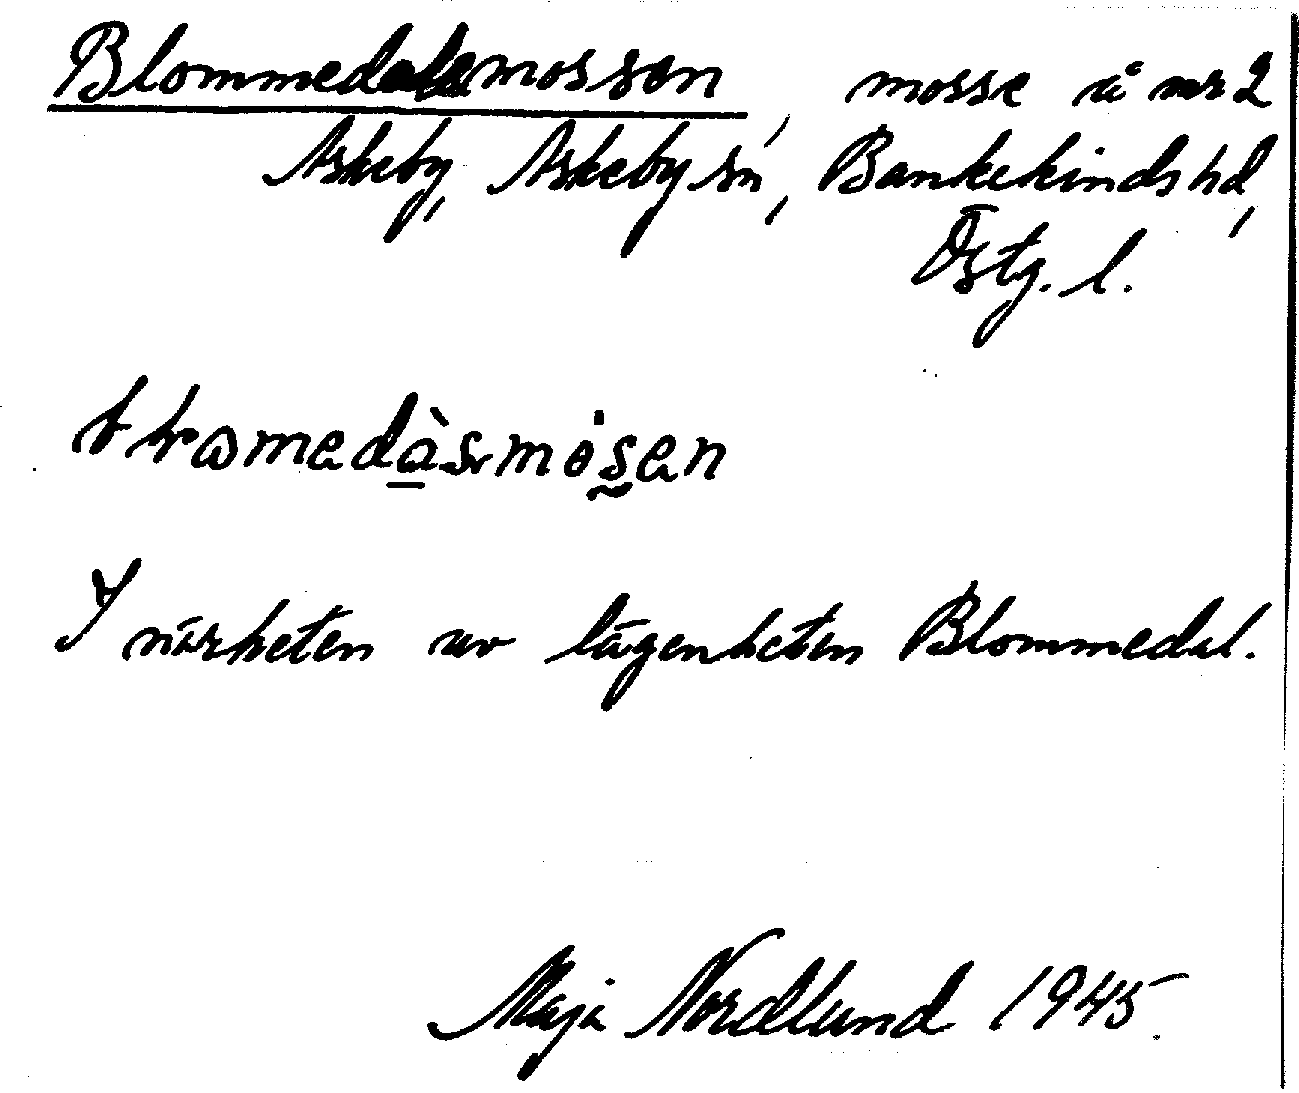 Blommedalsmossen, mosse å nr 2
Askeby, Askeby sn, Bankekinds hd,
Östg. l.
I närheten av lägenheten Blommedal.
Maja Nordlund 1945.